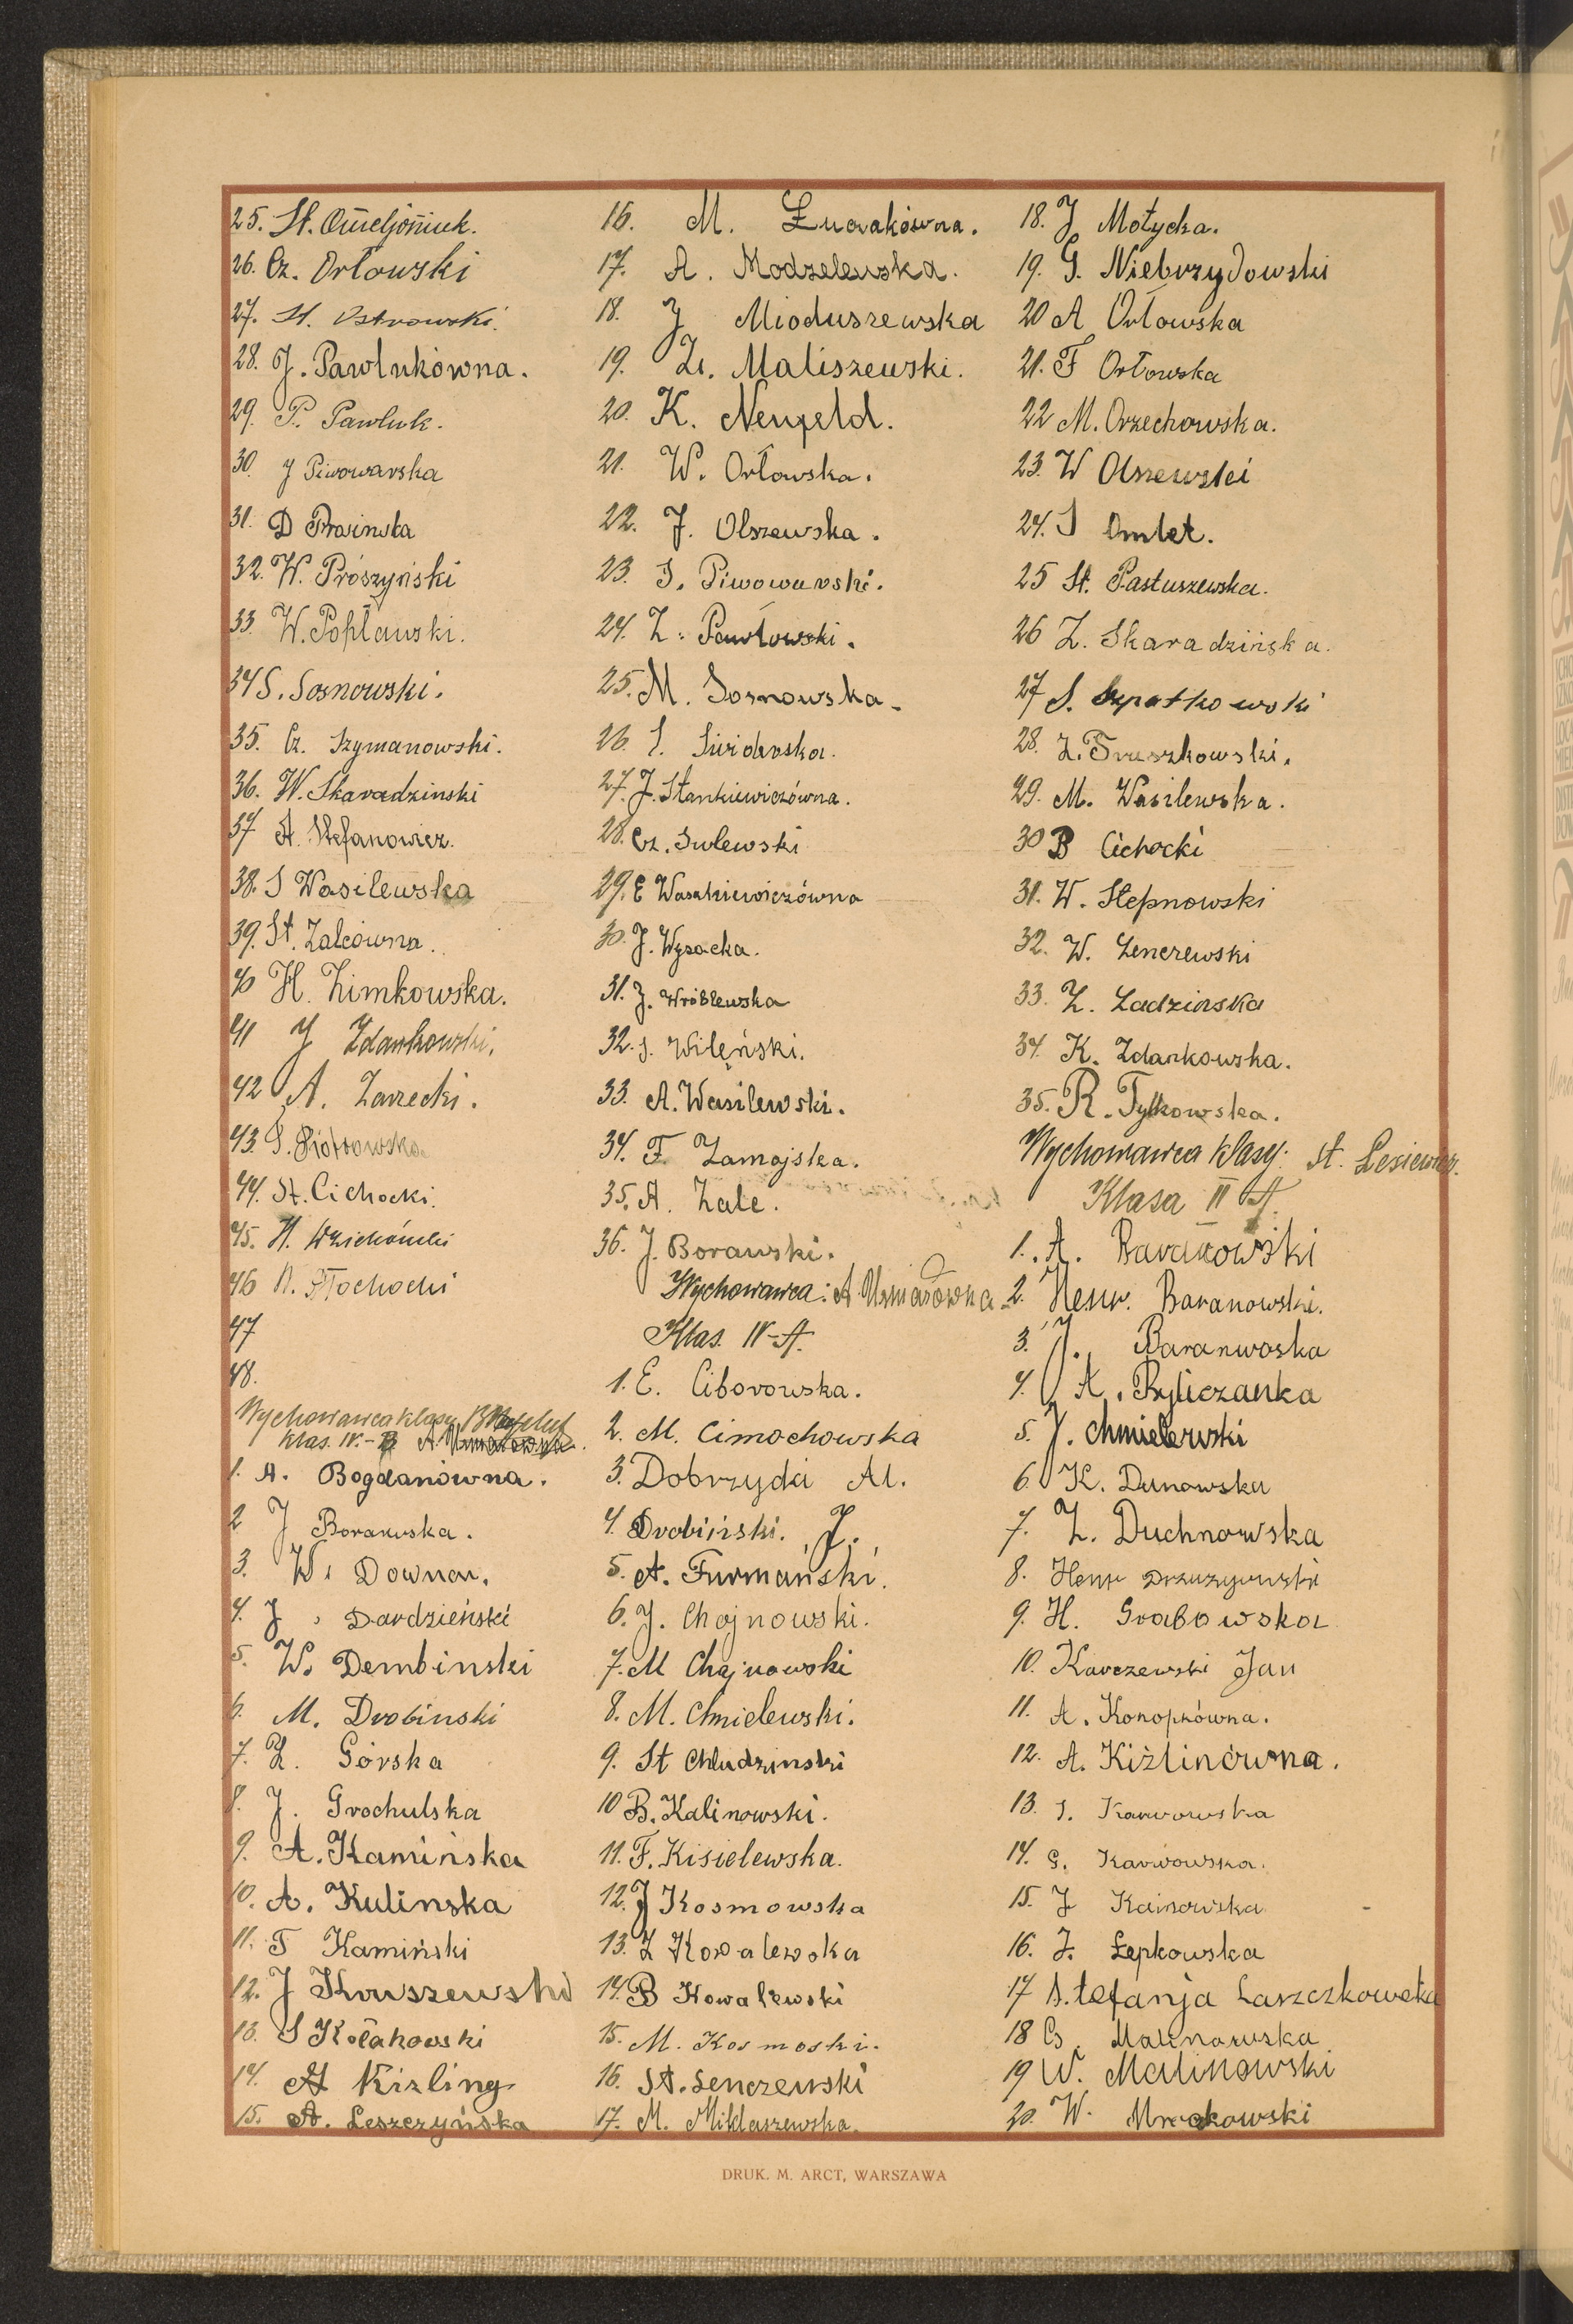 25. St. Omeljaniuk.
26. Cz. Orłowski
27. St. Ostrowski.
28. J. Pawlukówna.
29. P. Pawluk.
30. J Piwowarska
31. D Prosinska
32. W. Prószyński
33. W. Popławski.
34 S. Sosnowski.
35. Cz. Szymanowski.
36. W. Skaradzinski
37 A. Stefanowicz.
38. S Wasilewska
39. St. Zalcówna.
40 H. Zimkowska.
41 J Zdankowski.
42 A. Zarzecki.
43. S. Piotrowska
44. St. Cichocki.
45. H.
46 A. Płochocki
47
48.
Wychowawca klasy
Klas. IV.-B
1. A. Bogdanówna.
2 J Borawska.
3. W. Downar.
4. J. Dardzieński
5. W. Dembinski
6. M. Drobinski
7. Z. Górska
8. J. Grochulska
9. A. Kamińska
10. A. Kulinska
11. T Kamiński
12. J Kruszewski
13. S Kołakowski
14. A Kizling
15. A. Leszczyńska
16. M.
17. A. Modzelewska.
18. J Mioduszewska
19. Zi. Maliszewski.
20. K. Neufeld.
21. W. Orłowska.
22. J. Olszewska.
23. S. Piwowarski.
24. Z. Pawłowski.
25. M. Sosnowska.
26. S. Świderska.
27. J. Stankiewiczówna.
28. Cz. Sulewski
29. E Waszkiewiczówna
30. J. Wysocka.
31. J. Wróblewska
32. S. Wileński.
33. A. Wasilewski.
34. F. Zamojska.
35. A. Zalc.
36. J. Borawski.
Wychowawca: A.
Klas. IV-A.
1. E. Ciborowska.
2. M. Cimochowska
3. Dobrzycki Al.
4. Drobiński. J.
5. A. Furmański.
6. J. Chojnowski.
7. M Chojnowski
8. M. Chmielewski.
9. St Chludzinski
10 B. Kalinowski.
11. F. Kisielewska.
12. J Kosmowska
13. Z Kowalewska
14. B Kowalewski
15. M. Kosmoski.
16. St. Senczewski
17. M. Miklaszewska.
18. J Motycka.
19. G. Niebrzydowski
20 A Orłowska
21. F Orłowska
22 M. Orzechowska.
23. W Olszewski
24. S Omlet.
25 St. Pastuszewska.
26 Z. Skaradzińska.
27 S. Szpatkowski
28. Z. Truszkowski.
29. M. Wasilewska.
30 B Cichocki
31. W. Stepnowski
32. W. Zenczewski
33. Z.
34. K. Zdankowska.
35. R. Tylkowska.
Wychowawca klasy: St. Lesiewicz.
Klasa III A.
1. A. Baranowski
2. Henr. Baranowski.
3. J. Baranwoska
4. A. Byliczanka
5. J. Chmielewski
6. K. Dunowska
7. Z. Duchnowska
8. Henr
9. H. Grabowska
10. Karczewski Jan
11. A. Konopkówna.
12. A. Kiźlinówna.
13. S. Karwowska
14. G. Karwowska.
15. J
16. J. Łepkowska
17 Stefanja Laszczkowska
18 G. Malinowska
19 W. Malinowski
20. W. Mroczkowski
DRUK. M. ARCT, WARSZAWA